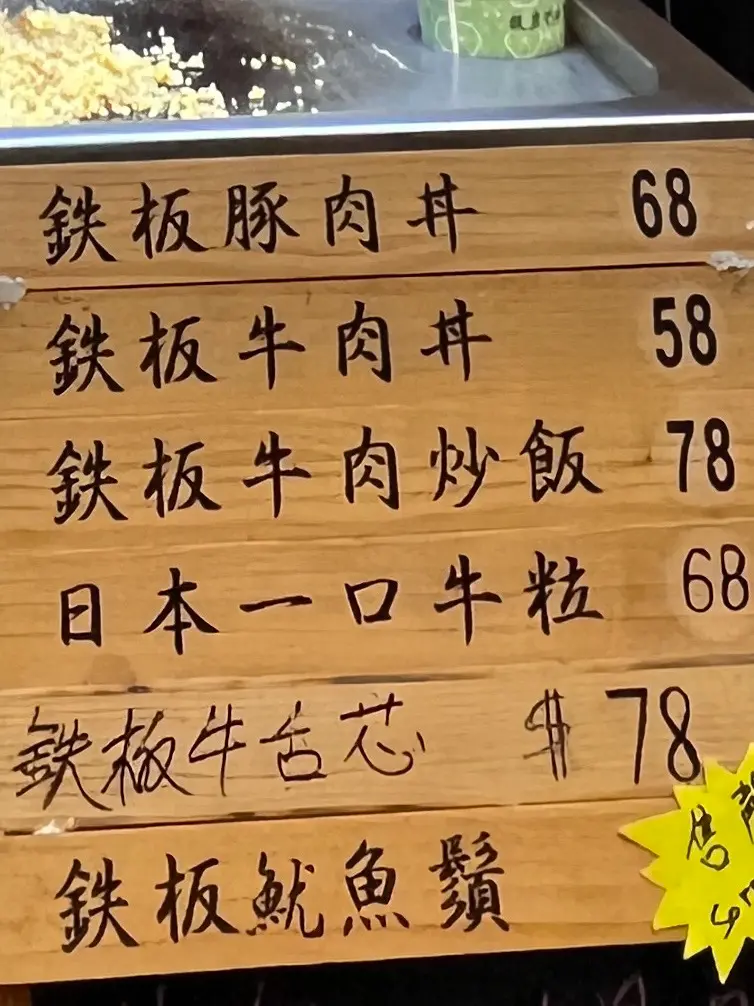 鉄板豚肉丼 68
鉄板牛肉丼 58
鉄板牛肉炒飯 78
日本一口牛粒 68
鉄板牛舌芯 $78
鉄板魷魚鬚
售